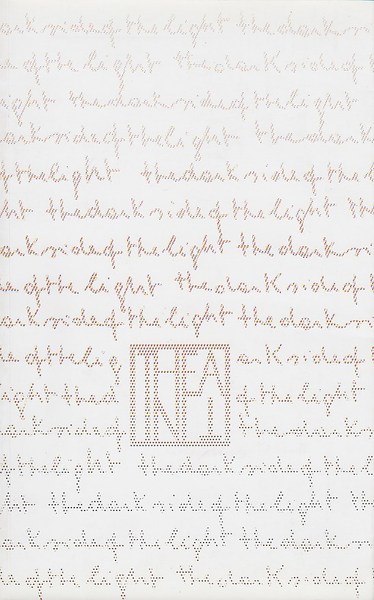 ark side of the light the dark
e of the light the dark side of
ight the dark side of the light
ark side of the light the dark
of the light the dark side of the
ht the dark side of the light th
ark side of the light the dark
e of the light the dark side of
ark side of the light the dark
e of the lig ark side of
ight the d of the light
ark side of the dark
f the light the dark side of the l
ht the dark side of the light th
ark side of the light the dark
e of the light the dark side of